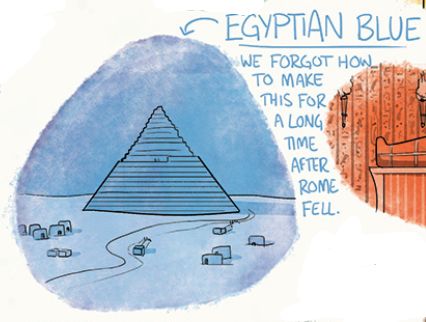 EGYPTIAN BLUE
WE FORGOT HOW
TO MAKE
THIS FOR
A LONG
TIME
AFTER
ROME
FELL.